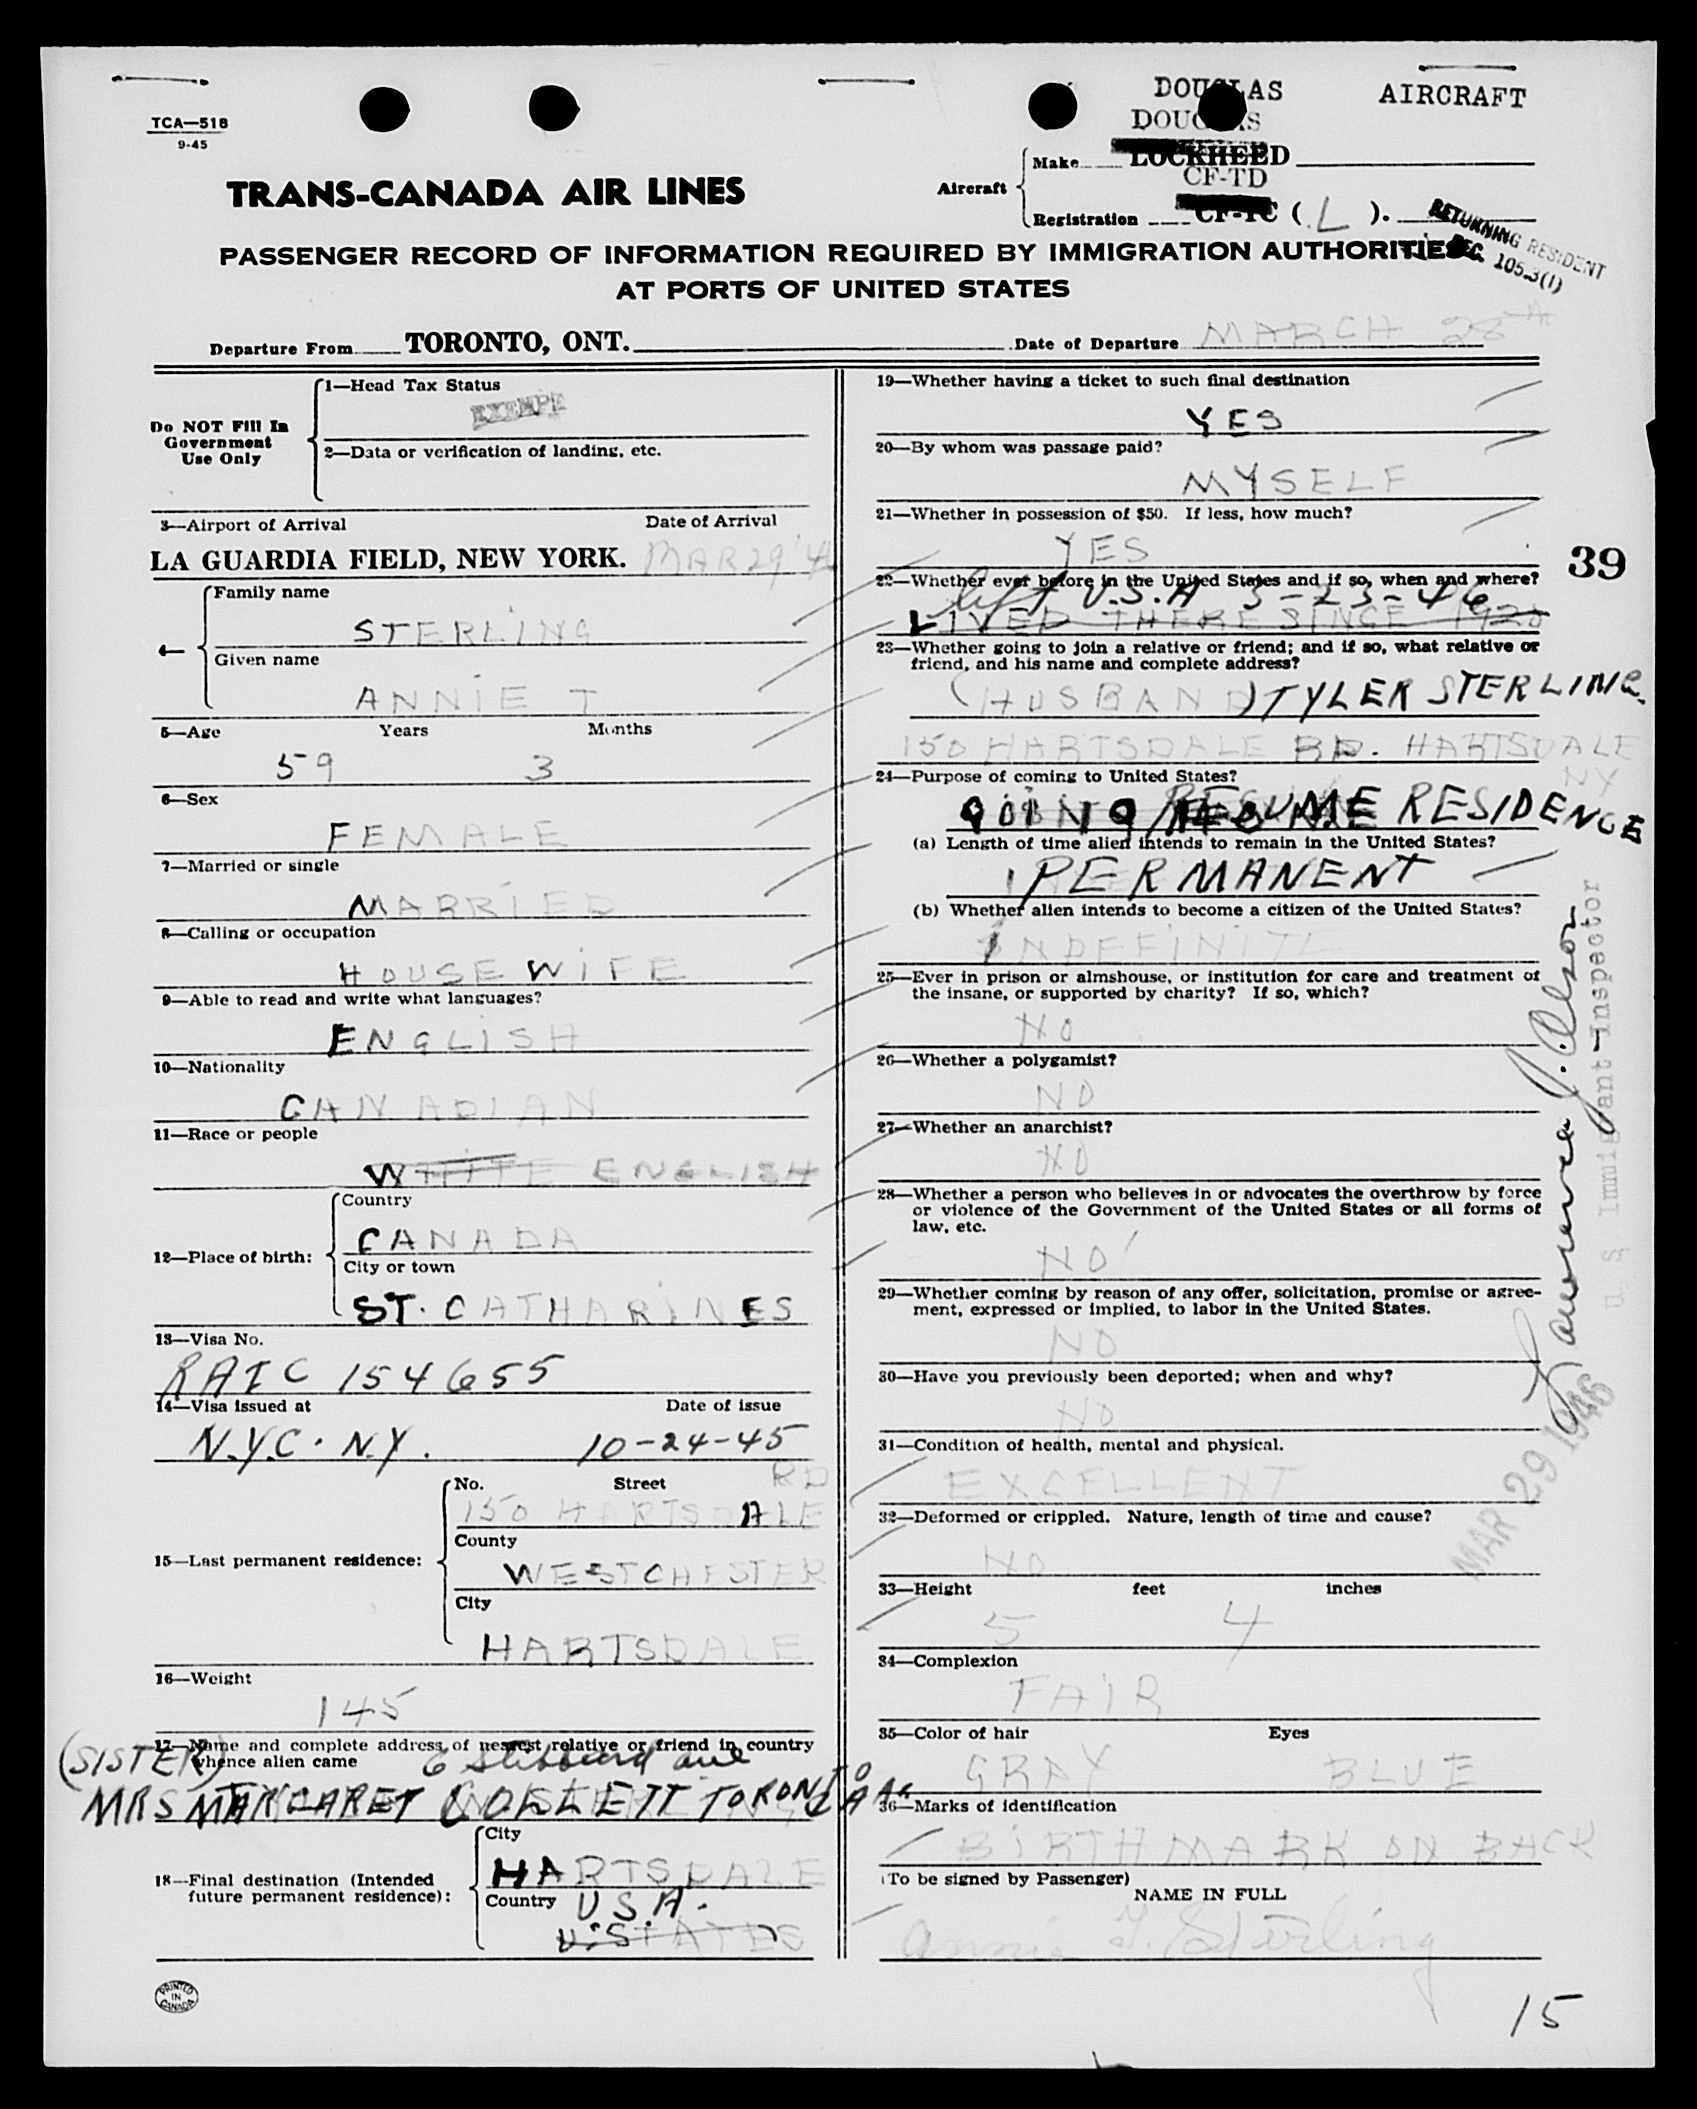 TCA—518
9-45
DOUGLAS AIRCRAFT
DOUGLAS
TRANS-CANADA AIR LINES
Aircraft
Make LOCKHEED
CF-TD
Registration CF-TC ( L ).
RETURNING RESIDENT
SEC. 105.3(1)
PASSENGER RECORD OF INFORMATION REQUIRED BY IMMIGRATION AUTHORITIES
AT PORTS OF UNITED STATES
Departure From TORONTO, ONT.
Date of Departure MARCH 28
Do NOT Fill In
Government
Use Only
1—Head Tax Status
EXEMPT
2—Data or verification of landing, etc.
3—Airport of Arrival Date of Arrival
LA GUARDIA FIELD, NEW YORK. MAR 29 '4
Family name
STERLING
Given name
ANNIE T
5—Age Years Months
59 3
6—Sex
FEMALE
7—Married or single
MARRIED
8—Calling or occupation
HOUSEWIFE
9—Able to read and write what languages?
ENGLISH
10—Nationality
CANADIAN
11—Race or people
WHITE ENGLISH
12—Place of birth:
Country
CANADA
City or town
ST. CATHARINES
13—Visa No.
RAIC 154655
14—Visa issued at Date of issue
N.Y.C. N.Y. 10-24-45
15—Last permanent residence:
No. Street RD
150 HARTSDALE
County
WESTCHESTER
City
HARTSDALE
16—Weight
145
17—Name and complete address of nearest relative or friend in country
whence alien came
(SISTER) 6 Stibbard ave
MRS MARGARET COLLETT TORONTO
18—Final destination (Intended
future permanent residence):
City
HARTSDALE
Country U.S.A.
U. STATES
PRINTED
IN
CANADA
19—Whether having a ticket to such final destination
YES
20—By whom was passage paid?
MYSELF
21—Whether in possession of $50. If less, how much?
YES
39
22—Whether ever before in the United States and if so, when and where?
left U.S.A 3-23-46
LIVED THERE SINCE 1920
23—Whether going to join a relative or friend; and if so, what relative or
friend, and his name and complete address?
(HUSBAND) TYLER STERLING
150 HARTSDALE RD. HARTSDALE
NY
24—Purpose of coming to United States?
GOING HOME RESUME RESIDENCE
(a) Length of time alien intends to remain in the United States?
PERMANENT
(b) Whether alien intends to become a citizen of the United States?
INDEFINITE
25—Ever in prison or almshouse, or institution for care and treatment of
the insane, or supported by charity? If so, which?
NO
26—Whether a polygamist?
NO
27—Whether an anarchist?
NO
28—Whether a person who believes in or advocates the overthrow by force
or violence of the Government of the United States or all forms of
law, etc.
NO
29—Whether coming by reason of any offer, solicitation, promise or agree-
ment, expressed or implied, to labor in the United States.
NO
30—Have you previously been deported; when and why?
NO
31—Condition of health, mental and physical.
EXCELLENT
32—Deformed or crippled. Nature, length of time and cause?
NO
33—Height feet inches
5 4
34—Complexion
FAIR
35—Color of hair Eyes
GRAY BLUE
36—Marks of identification
BIRTHMARK ON BACK
(To be signed by Passenger)
NAME IN FULL
Annie T. Sterling
Lawrence J. Olson
U. S. Immigrant Inspector
MAR 29 1946
15